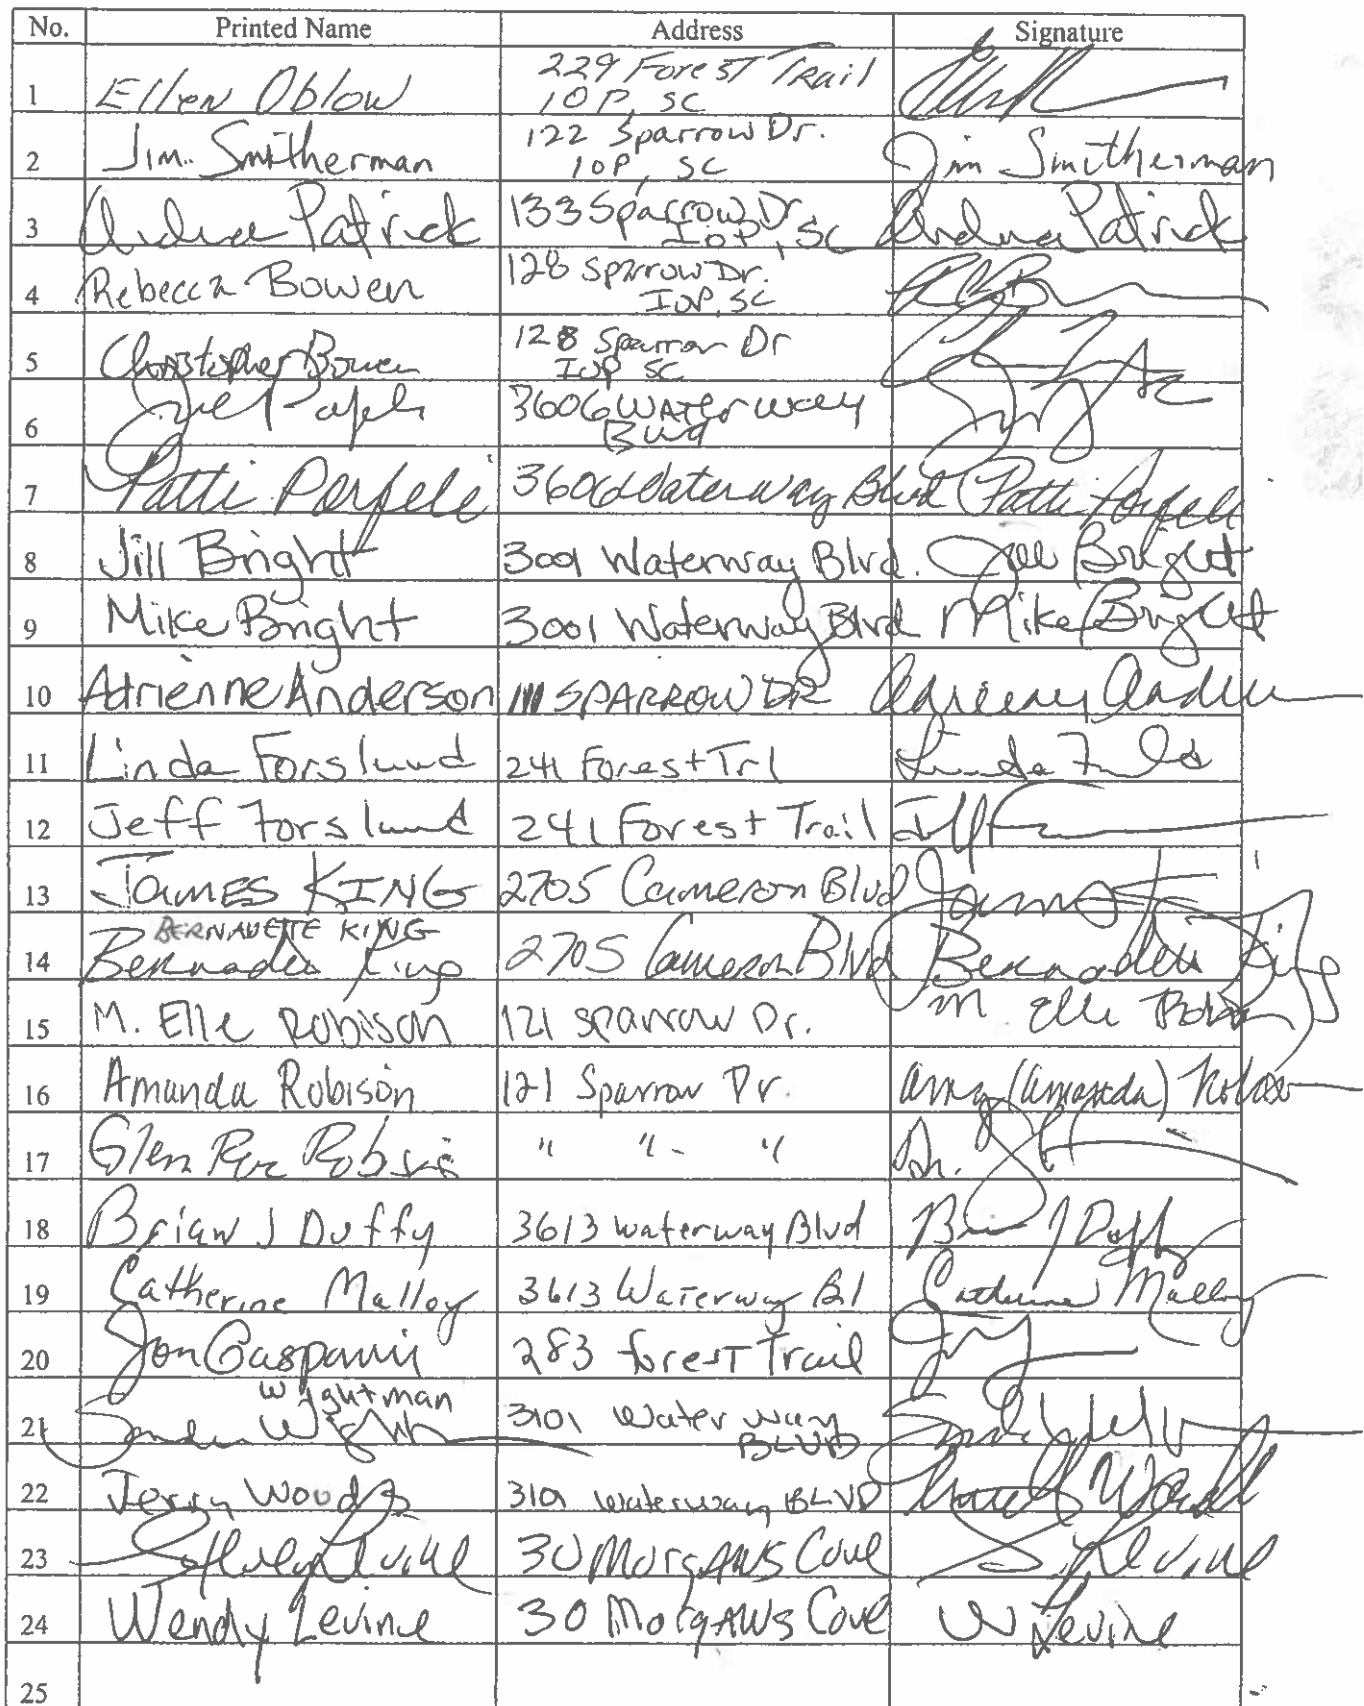 No. Printed Name Address Signature
1 Ellen Oblow 229 Forest Trail
IOP, SC
2 Jim Smitherman 122 Sparrow Dr. Jim Smitherman
IOP, SC
3 Andrea Patrick 133 Sparrow Dr. Andrea Patrick
IOP, SC
4 Rebecca Bowen 128 Sparrow Dr.
IOP, SC
5 Christopher Bowen 128 Sparrow Dr
IOP SC
6 3606 Waterway
Blvd
7 Patti 3606 Waterway Blvd Patti
8 Jill Bright 3001 Waterway Blvd. Jill Bright
9 Mike Bright 3001 Waterway Blvd Mike Bright
10 Adrienne Anderson 111 SPARROW DR
11 Linda Forslund 241 Forest Trl Linda
12 Jeff Forslund 241 Forest Trail Jeff
13 James KING 2705 Cameron Blvd James
BERNADETTE KING
14 Bernadette King 2705 Cameron Blvd Bernadette King
15 M. Elle Robison 121 Sparrow Dr. M Elle
16 Amanda Robison 121 Sparrow Dr. Amy (Amanda)
17 Glen Robison " " "
18 Brian J Duffy 3613 Waterway Blvd Brian J Duffy
19 Catherine Malloy 3613 Waterway Bl Catherine Malloy
20 Jon Gasparini 283 Forest Trail
Wightman
21 3101 Water way
BLVD
22 Jerry Woods 3101 Waterway BLVD
23 Levine 30 Morgans Cove S Levine
24 Wendy Levine 30 Morgans Cove W Levine
25